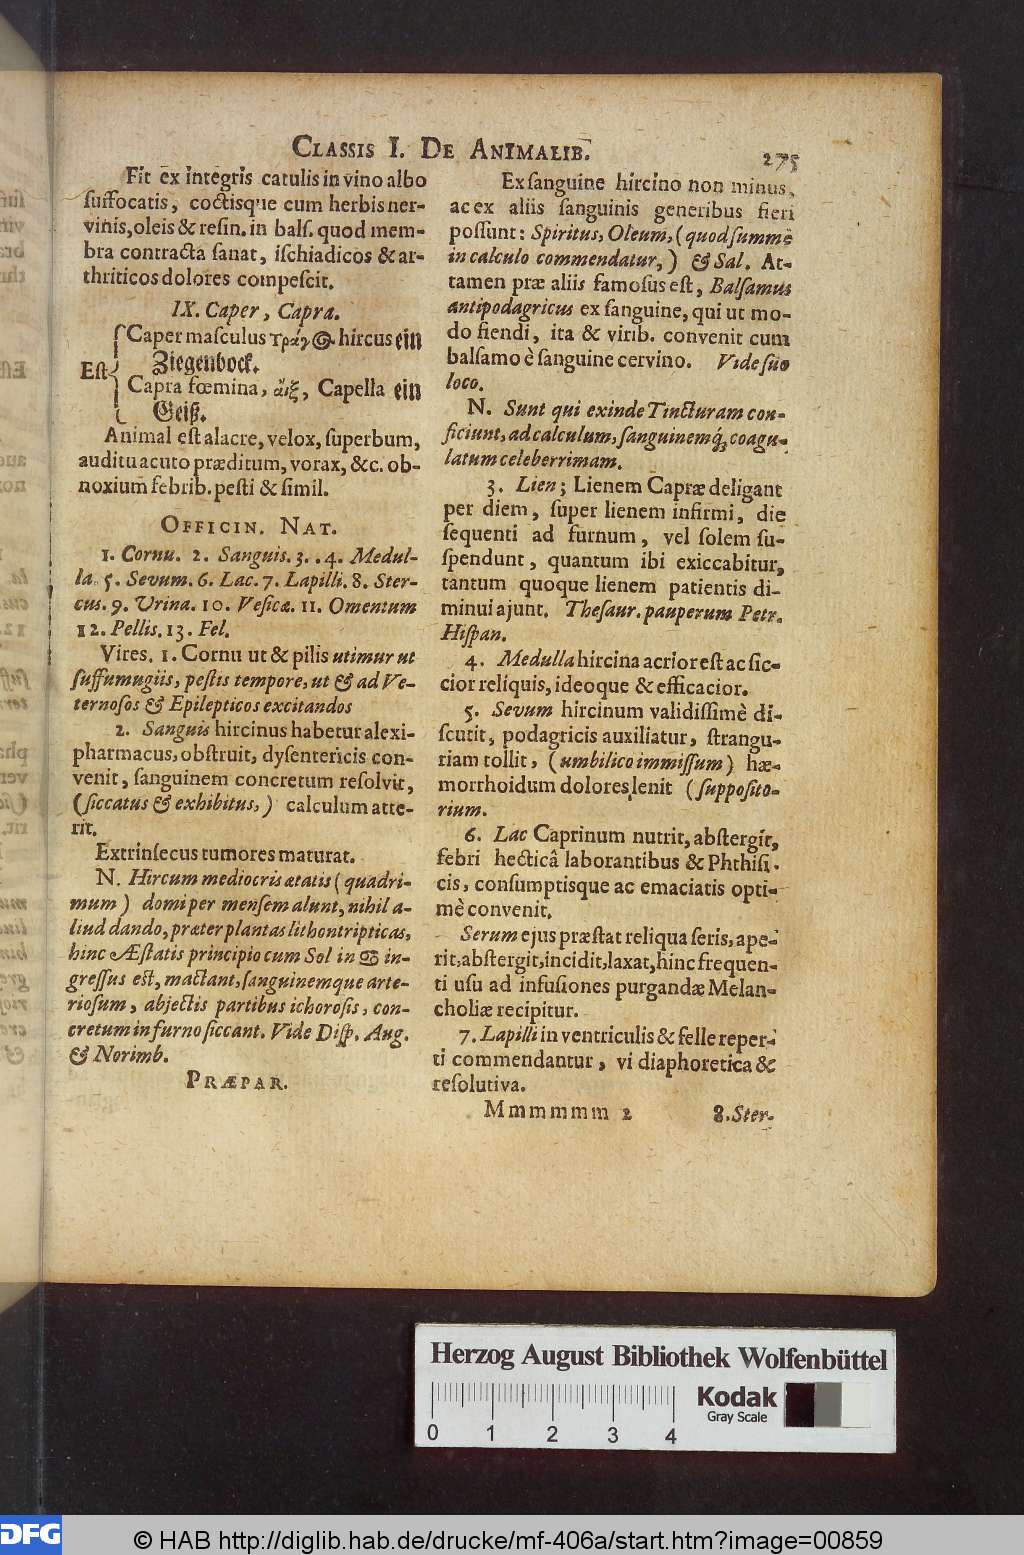 CLASSIS I. DE ANIMALIB. 275
Fit ex integris catulis in vino albo
ſuffocatis, coctisque cum herbis ner-
vinis, oleis & reſin. in balſ. quod mem-
bra contracta ſanat, iſchiadicos & ar-
thriticos dolores compeſcit.
IX. Caper, Capra.
Caper maſculus τράγ⊙. hircus ein
Ziegenbock.
Eſt
Capra fœmina, ἄιξ, Capella ein
Geiß.
Animal eſt alacre, velox, ſuperbum,
auditu acuto præditum, vorax, &c. ob-
noxium febrib. peſti & ſimil.
OFFICIN. NAT.
1. Cornu. 2. Sanguis. 3. . 4. Medul-
la. 5. Sevum. 6. Lac. 7. Lapilli. 8. Ster-
cus. 9. Urina. 10. Veſica. 11. Omentum
12. Pellis. 13. Fel.
Vires. 1. Cornu ut & pilis utimur ut
ſuffumugiis, peſtis tempore, ut & ad Ve-
ternoſos & Epilepticos excitandos
2. Sanguis hircinus habetur alexi-
pharmacus, obſtruit, dyſentericis con-
venit, ſanguinem concretum reſolvit,
(ſiccatus & exhibitus,) calculum atte-
rit.
Extrinſecus tumores maturat.
N. Hircum mediocris ætatis (quadri-
mum) domi per menſem alunt, nihil a-
liud dando, præter plantas lithontripticas,
hinc Æſtatis principio cum Sol in ♋ in-
greſſus eſt, mactant, ſanguinemque arte-
rioſum, abjectis partibus ichoroſis, con-
cretum in furno ſiccant. Vide Diſp. Aug.
& Norimb.
PRÆPAR.
Ex ſanguine hircino non minus,
ac ex aliis ſanguinis generibus fieri
poſſunt: Spiritus, Oleum, (quod ſummè
in calculo commendatur,) & Sal. At-
tamen præ aliis famoſus eſt, Balſamus
antipodagricus ex ſanguine, qui ut mo-
do fiendi, ita & virib. convenit cum
balſamo è ſanguine cervino. Vide ſuo
loco.
N. Sunt qui exinde Tincturam con-
ficiunt, ad calculum, ſanguinemq́; coagu-
latum celeberrimam.
3. Lien; Lienem Capræ deligant
per diem, ſuper lienem infirmi, die
ſequenti ad furnum, vel ſolem ſu-
ſpendunt, quantum ibi exiccabitur,
tantum quoque lienem patientis di-
minui ajunt. Theſaur. pauperum Petr.
Hiſpan.
4. Medulla hircina acrior eſt ac ſic-
cior reliquis, ideoque & efficacior.
5. Sevum hircinum validiſſimè di-
ſcutit, podagricis auxiliatur, ſtrangu-
riam tollit, (umbilico immiſſum) hæ-
morrhoidum dolores lenit (ſuppoſito-
rium.
6. Lac Caprinum nutrit, abſtergit,
febri hecticâ laborantibus & Phthiſi-
cis, conſumptisque ac emaciatis opti-
mè convenit.
Serum ejus præſtat reliqua ſeris, ape-
rit, abſtergit, incidit, laxat, hinc frequen-
ti uſu ad infuſiones purgandæ Melan-
choliæ recipitur.
7. Lapilli in ventriculis & felle reper-
ti commendantur, vi diaphoretica &
reſolutiva.
Mmmmmm 2 8. Ster-
Herzog August Bibliothek Wolfenbüttel
Kodak
Gray Scale
0 1 2 3 4
DFG © HAB http://diglib.hab.de/drucke/mf-406a/start.htm?image=00859